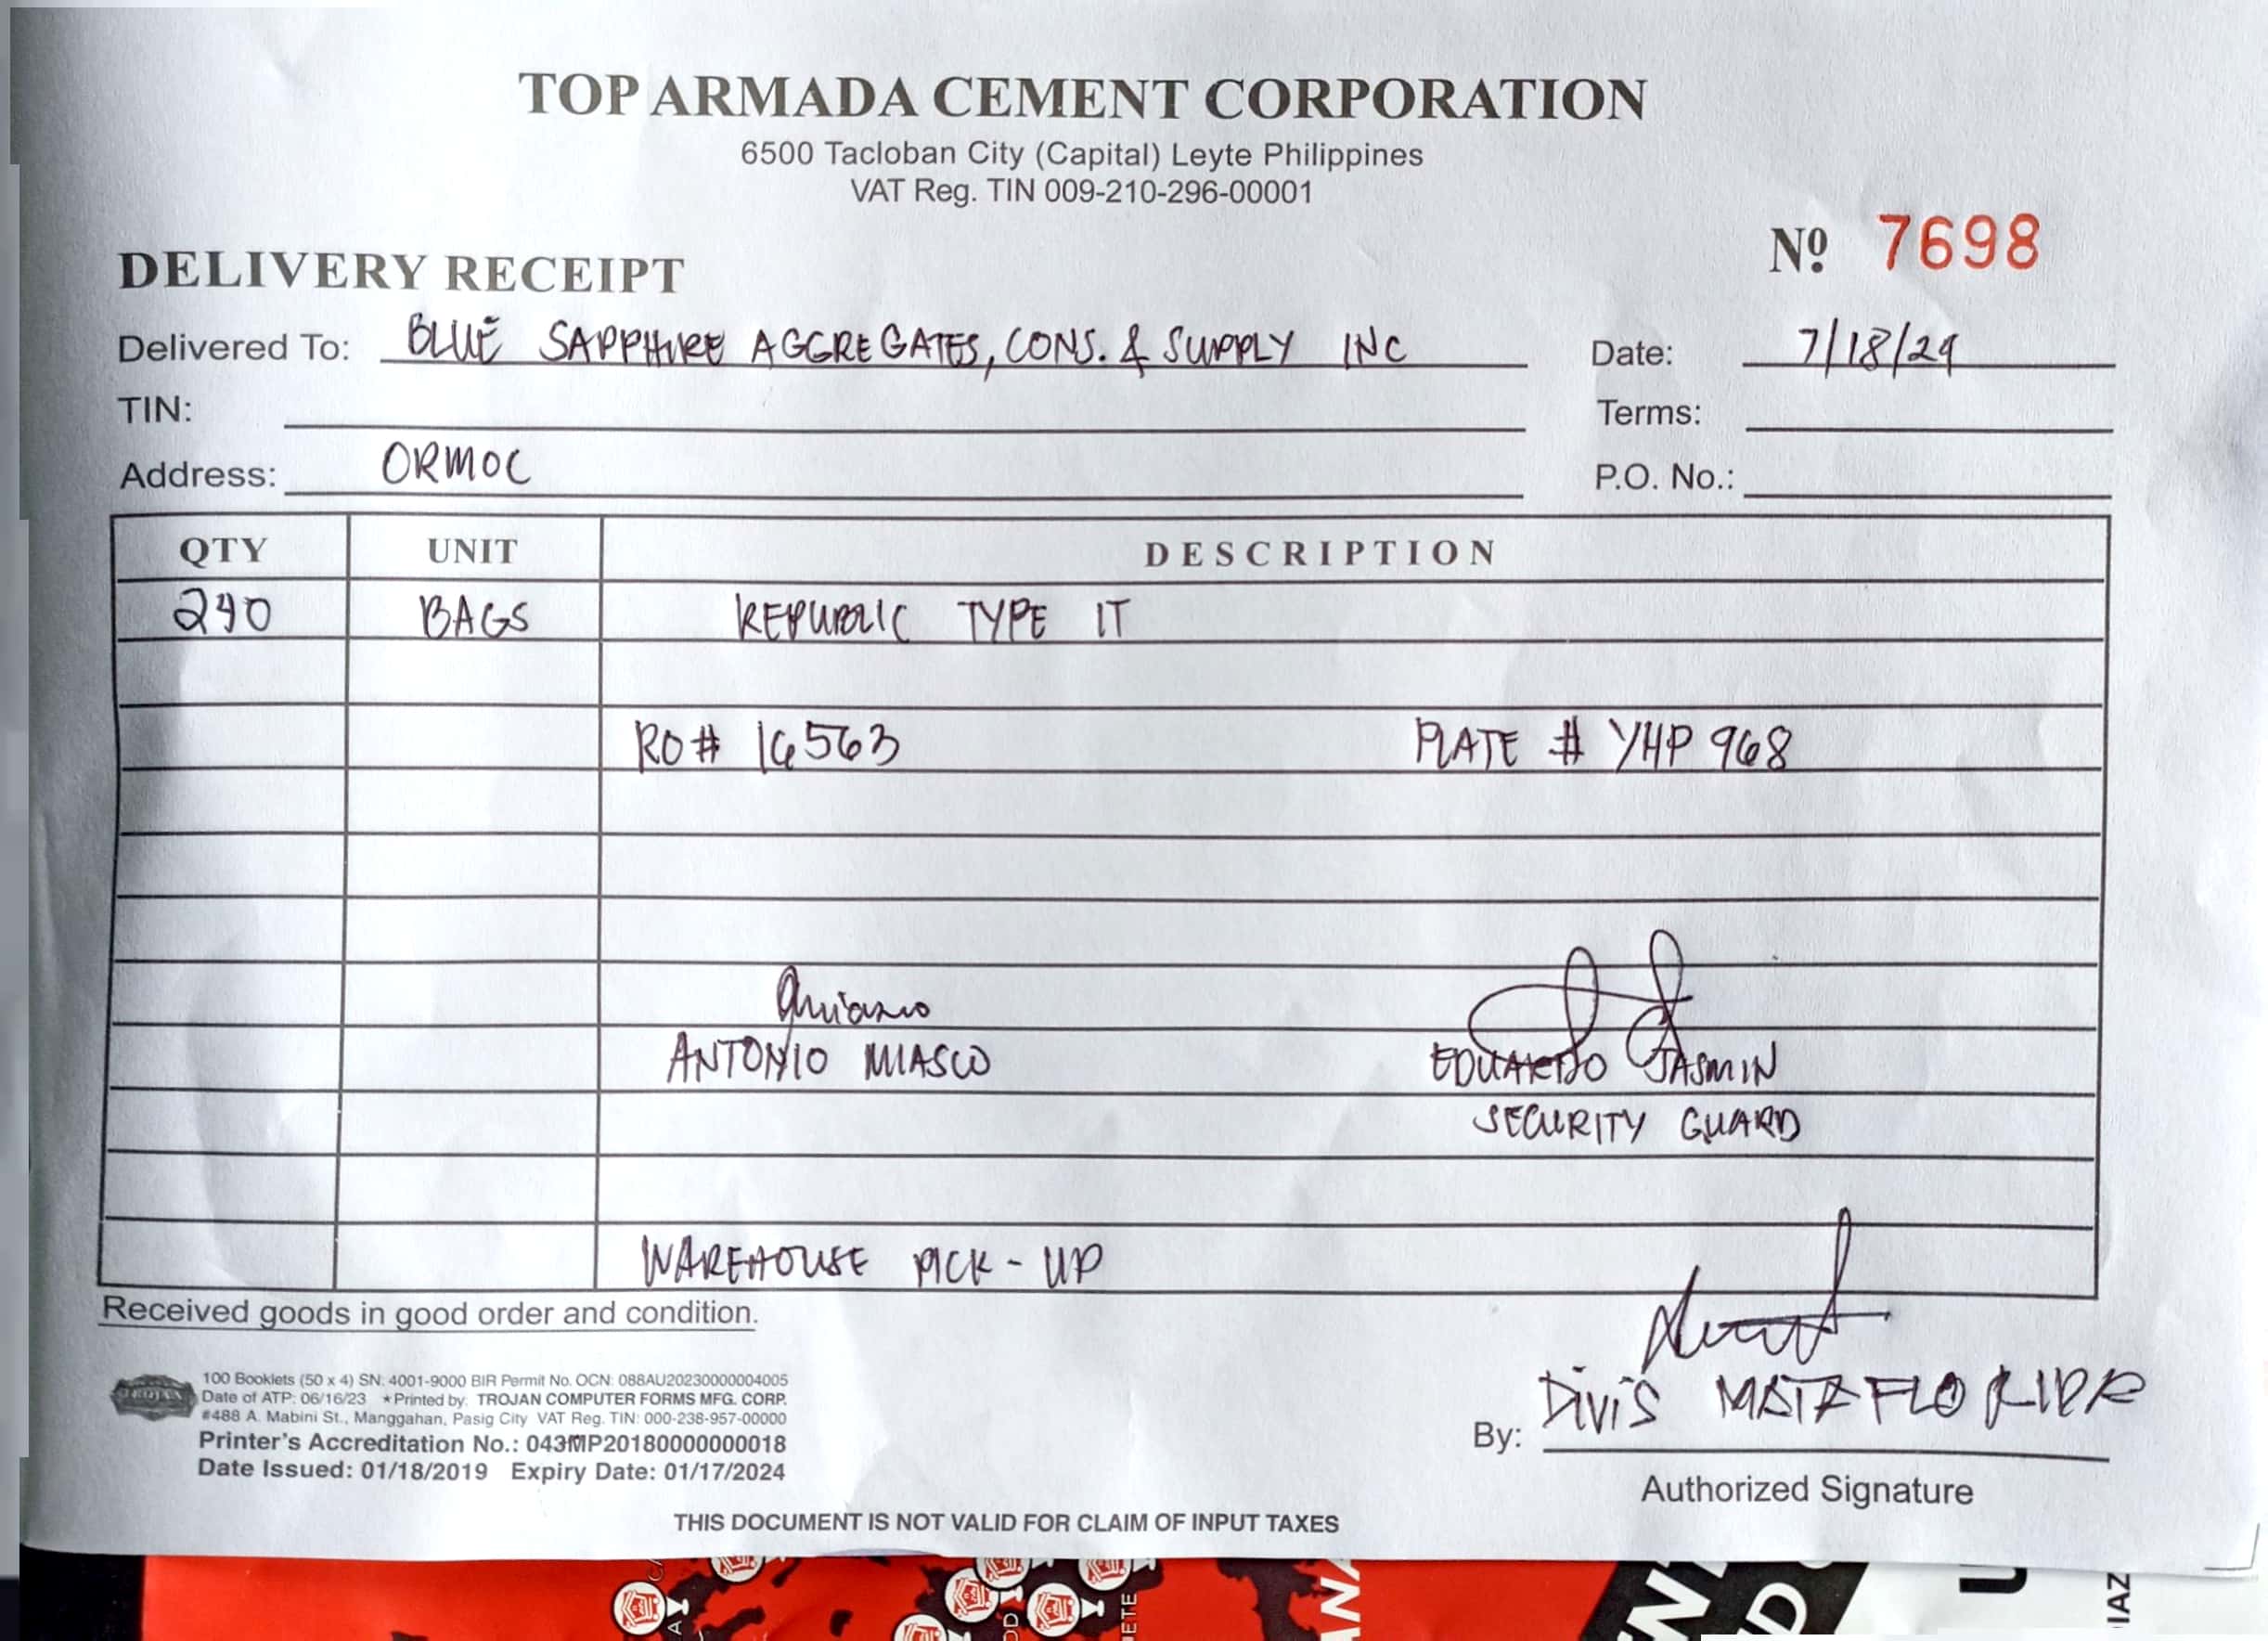 TOP ARMADA CEMENT CORPORATION
6500 Tacloban City (Capital) Leyte Philippines
VAT Reg. TIN 009-210-296-00001
Nº 7698
DELIVERY RECEIPT
Delivered To: BLUE SAPPHIRE AGGREGATES, CONS. & SUPPLY INC Date: 7/18/24
TIN: Terms:
Address: ORMOC P.O. No.:
QTY UNIT DESCRIPTION
240 BAGS REPUBLIC TYPE IT
RO# 16563 PLATE # YHP 968
ANTONIO MIASCO EDUARDO JASMIN
SECURITY GUARD
WAREHOUSE PICK-UP
Received goods in good order and condition.
100 Booklets (50 x 4) SN: 4001-9000 BIR Permit No. OCN: 088AU20230000004005
Date of ATP: 06/16/23 ★Printed by: TROJAN COMPUTER FORMS MFG. CORP.
#488 A. Mabini St., Manggahan, Pasig City VAT Reg. TIN: 000-238-957-00000
Printer's Accreditation No.: 043MP20180000000018
Date Issued: 01/18/2019 Expiry Date: 01/17/2024
By: DIVIS MATAFLORIDA
Authorized Signature
THIS DOCUMENT IS NOT VALID FOR CLAIM OF INPUT TAXES